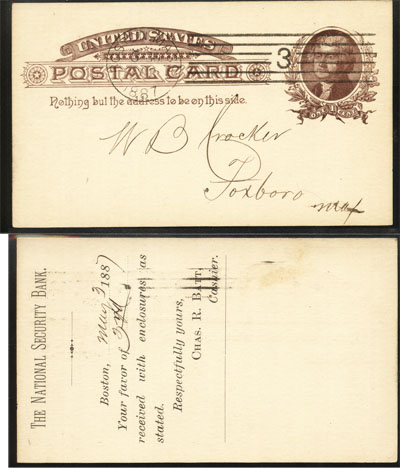 UNITED STATES
POSTAL CARD
Nothing but the address to be on this side.
1887
3
ONE CENT
W B Crocker
Foxboro
Mass
THE NATIONAL SECURITY BANK.
Boston, May 3 1887
Your favor of 2nd
received with enclosures as
stated.
Respectfully yours,
CHAS. R. BATT,
Cashier.